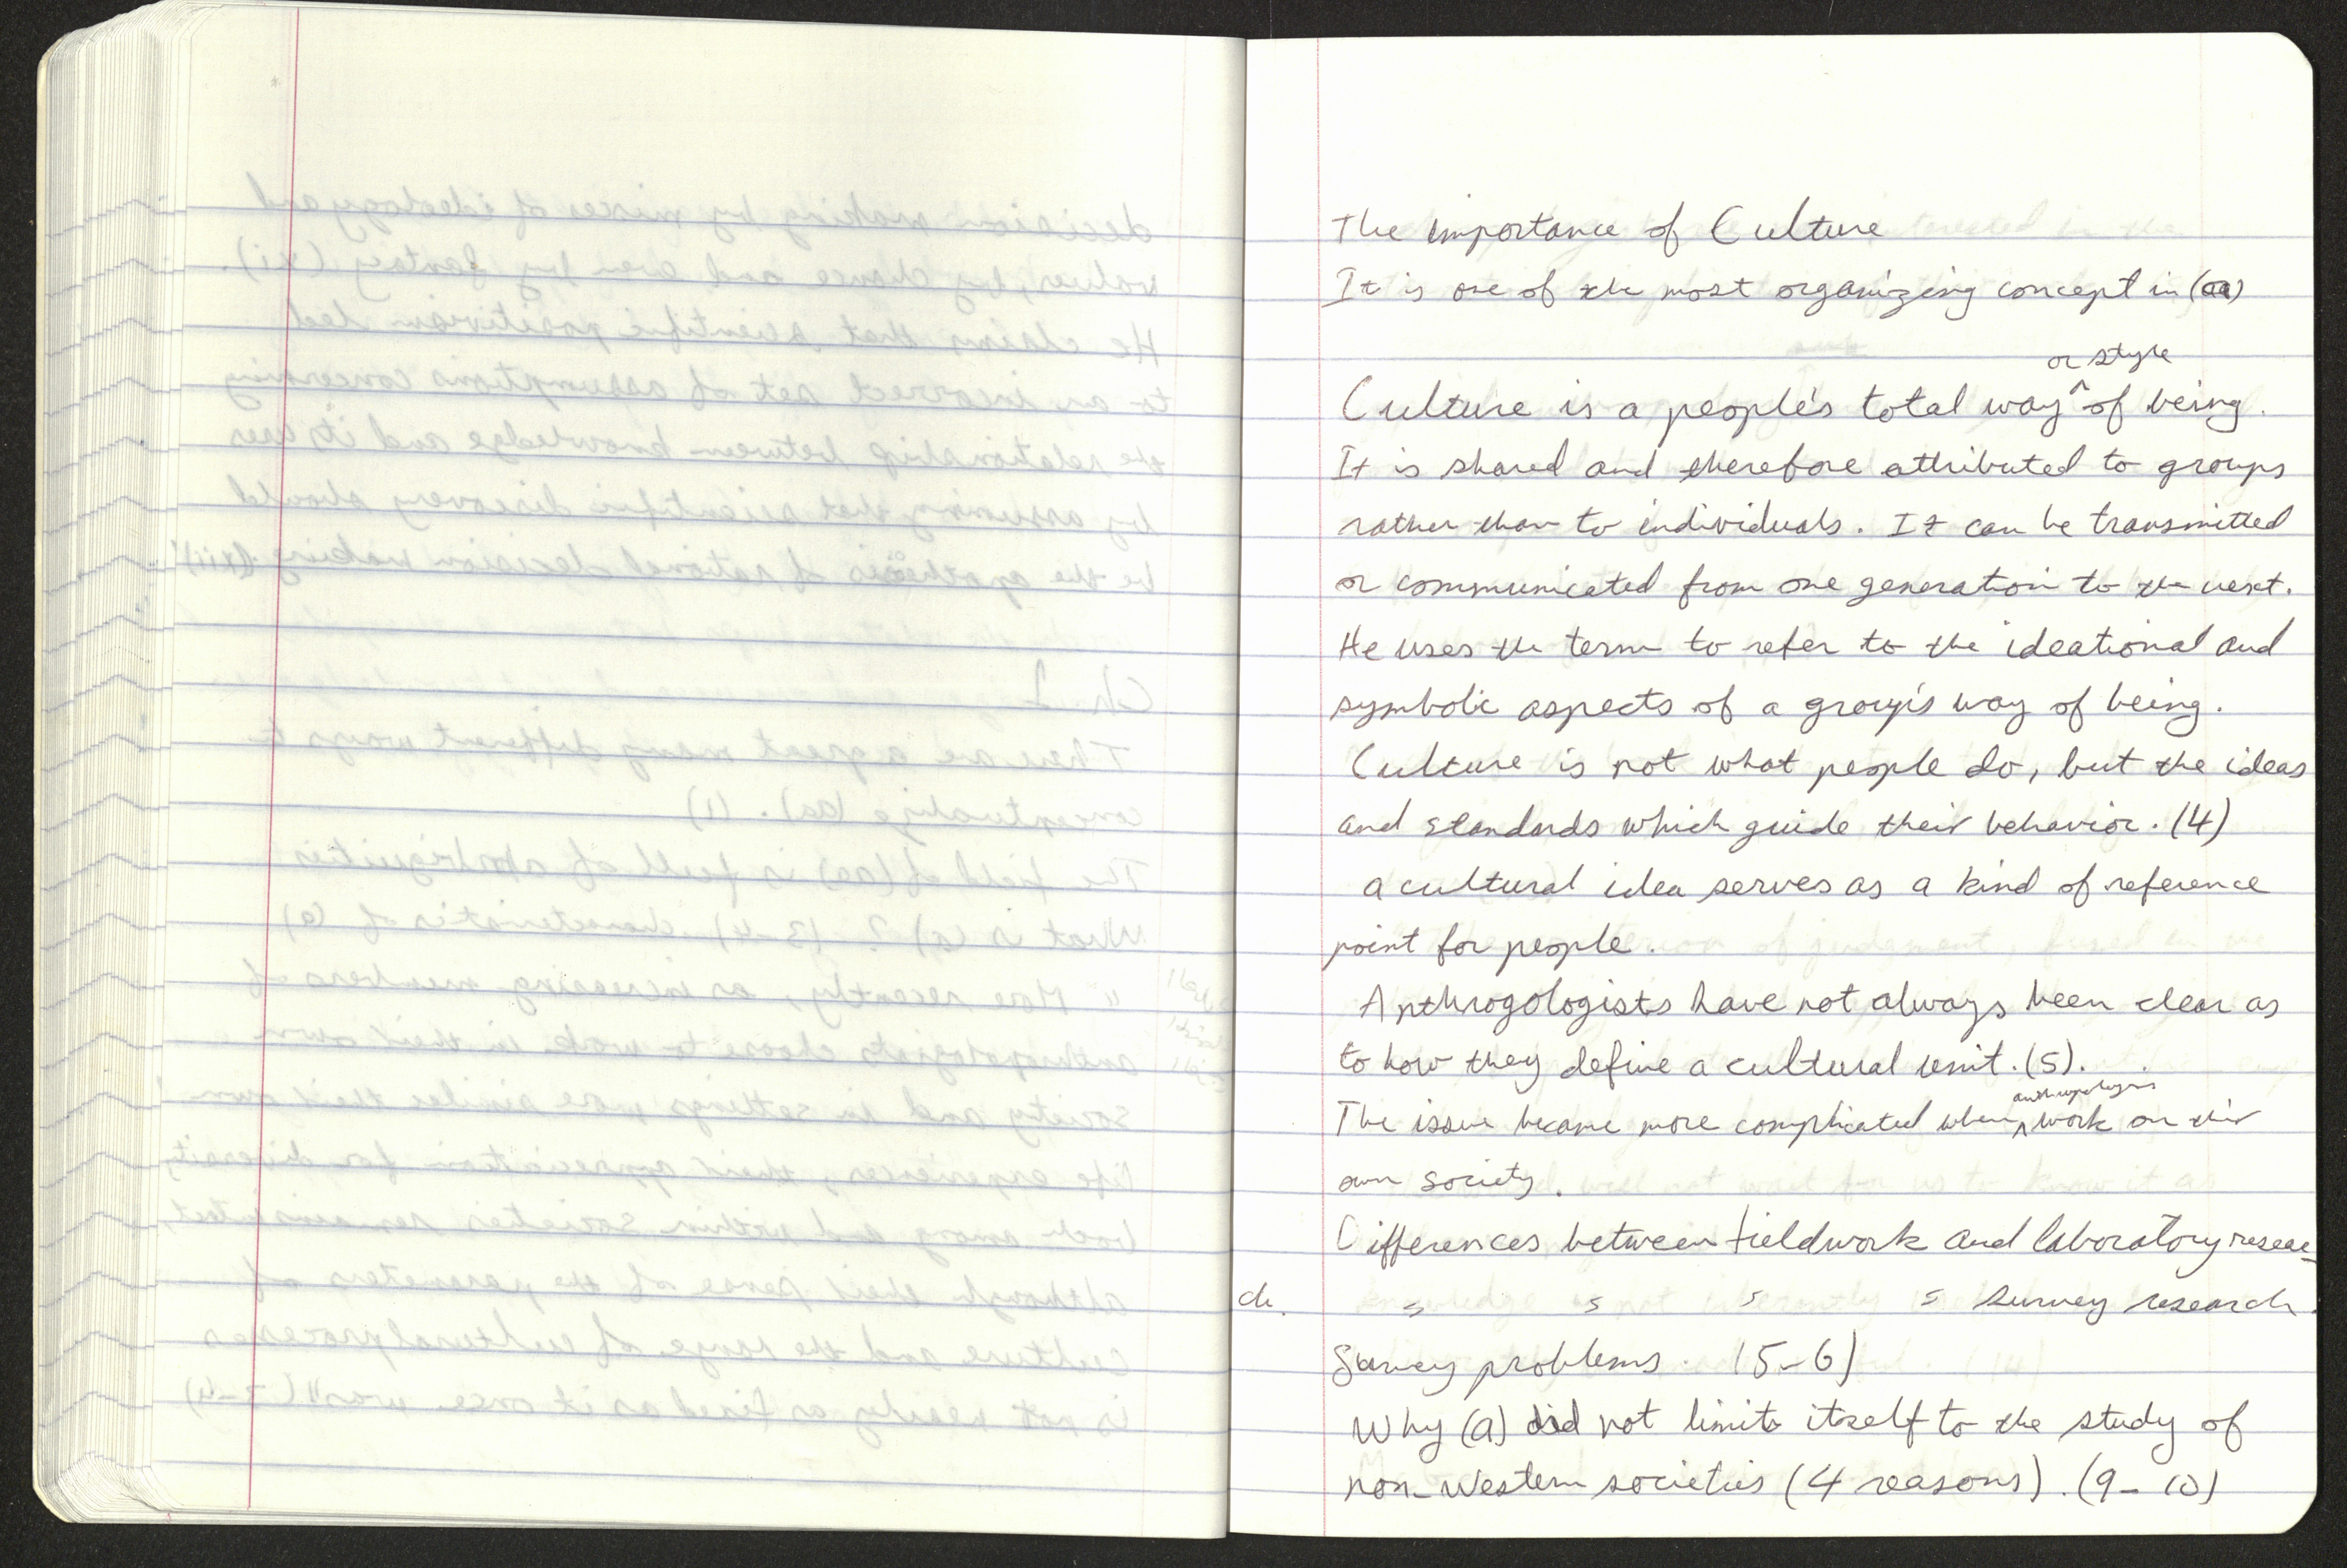 The importance of Culture
It is one of the most organizing concept in (aa)
or style
Culture is a people's total way ^ of being.
It is shared and therefore attributed to groups
rather than to individuals. It can be transmitted
or communicated from one generation to the next.
He uses the term to refer to the ideational and
symbolic aspects of a group's way of being.
Culture is not what people do, but the ideas
and standards which guide their behavior. (4)
a cultural idea serves as a kind of reference
point for people.
Anthrogologists have not always been clear as
to how they define a cultural unit. (5).
anthropologists
The issue became more complicated when ^ work on their
own society.
Differences between fieldwork and laboratory resear-
ch. " " " " survey research.
Survey problems. (5-6)
Why (a) did not limit itself to the study of
non-Western societies (4 reasons). (9-10)